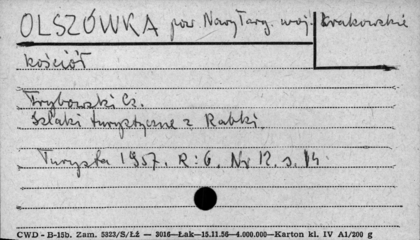 OLSZÓWKA pow. Nowy Targ. woj. krakowskie
kościół
Trybowski Cz.
Szlaki turystyczne z Rabki.
Turysta 1957. R: 6. Nr 12. s. 14.
CWD - B-15b. Zam. 5323/S/Łź — 3016—Łak—15.11.56—4.000.000—Karton kl. IV A1/200 g